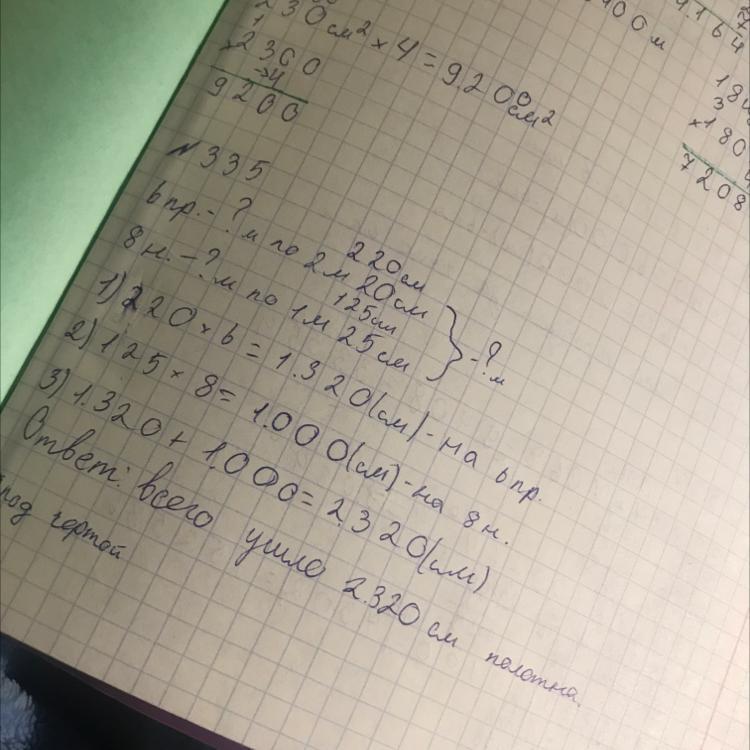 230см² × 4 = 9.200 см²
×2300
4
9200
100 см
9.164
× 180
7208
№ 335
6 пр. - ? м по 2м 20см
220см
8 н. - ? м по 1м 25см
125см
} - ? м
1) 220 × 6 = 1.320(см) - на 6 пр.
2) 125 × 8 = 1.000(см) - на 8 н.
3) 1.320 + 1.000 = 2.320(см)
Ответ: всего ушло 2.320 см полотна.
под чертой